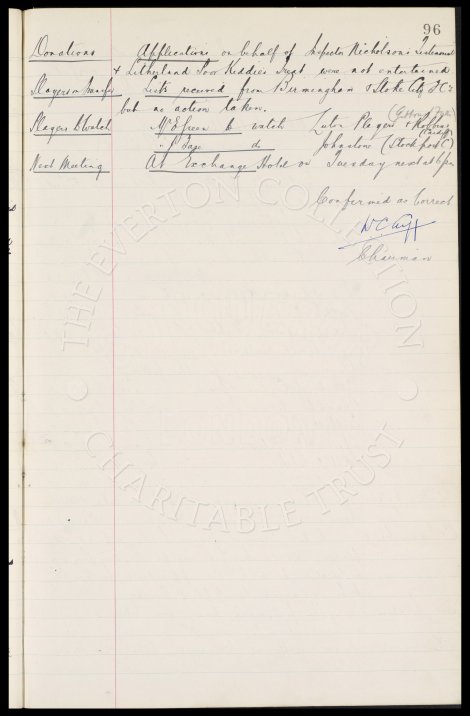 96
Donations Applications on behalf of Inspector Nicholson's Testimonial
& Litherland Poor Kiddies Treat were not entertained
Players on Transfer Lists received from Birmingham & Stoke City F.C's
but no action taken.
Players to Watch Mr Green to watch Luton Players &
" Sage do Johnstone (Stockport C)
Next Meeting At Exchange Hotel on Tuesday next at 6 pm
Confirmed as Correct
W. C. Cuff
Chairman
THE EVERTON COLLECTION
CHARITABLE TRUST